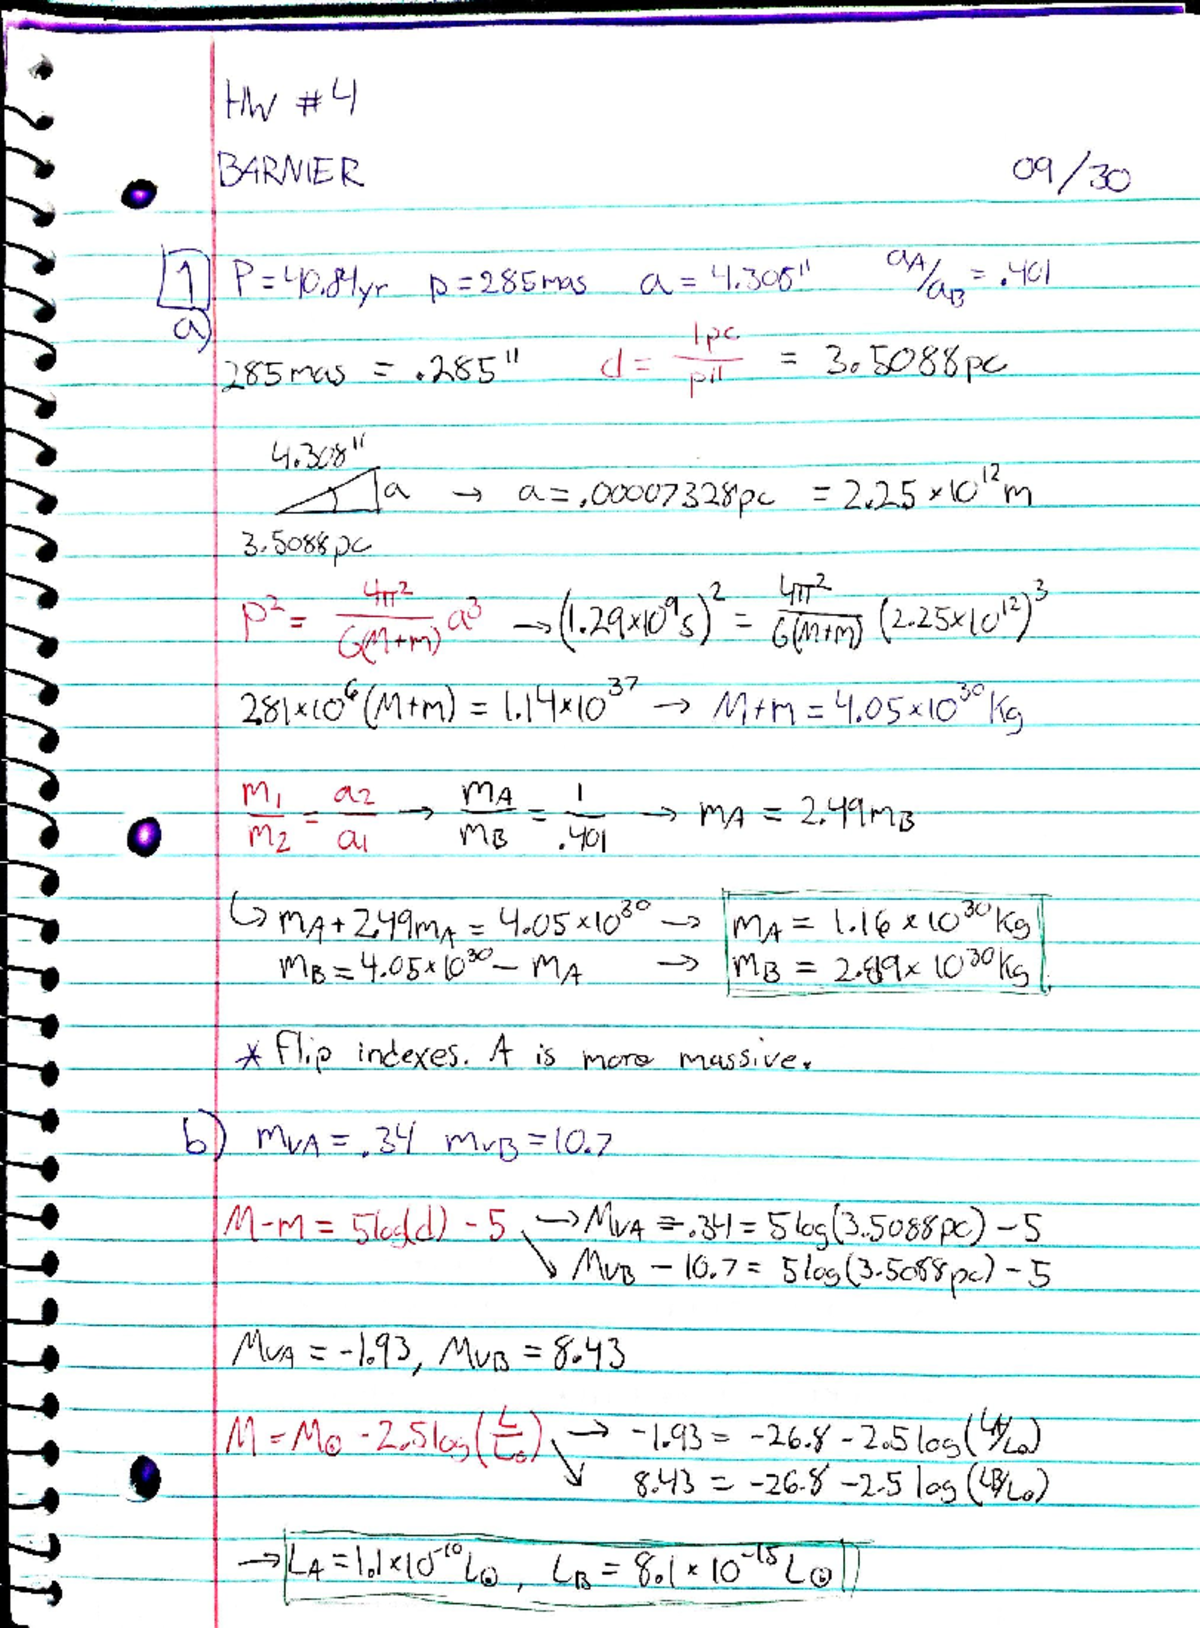 HW #4
BARNIER 09/30
1 P = 40.84yr p = 285mas a = 4.308" aA/aB = .401
a)
285mas = .285" d = 1pc/p" = 3.5088pc
4.308"
a → a = .00007328pc = 2.25 × 10¹² m
3.5088pc
P² = 4π²/G(M+m) a³ → (1.29×10⁹s)² = 4π²/G(M+m) (2.25×10¹²)³
281×10⁶(M+m) = 1.14×10³⁷ → M+m = 4.05×10³⁰ Kg
m₁/m₂ = a₂/a₁ → mA/mB = 1/.401 → mA = 2.49mB
↳ mA + 2.49mA = 4.05×10³⁰ → mA = 1.16 × 10³⁰ Kg
mB = 4.05×10³⁰ − mA → mB = 2.89× 10³⁰ Kg
* Flip indexes. A is more massive.
b) mVA = .34 mVB = 10.7
M-m = 5log(d) - 5 → MVA - .34 = 5log(3.5088pc) - 5
↘ MVB - 10.7 = 5log(3.5088pc) - 5
MVA = -1.93, MVB = 8.43
M = M⊙ - 2.5log(L/L⊙) → -1.93 = -26.8 - 2.5log(LA/L⊙)
↘ 8.43 = -26.8 - 2.5 log(LB/L⊙)
→ LA = 1.1×10⁻¹⁰ L⊙, LB = 8.1 × 10⁻¹⁵ L⊙